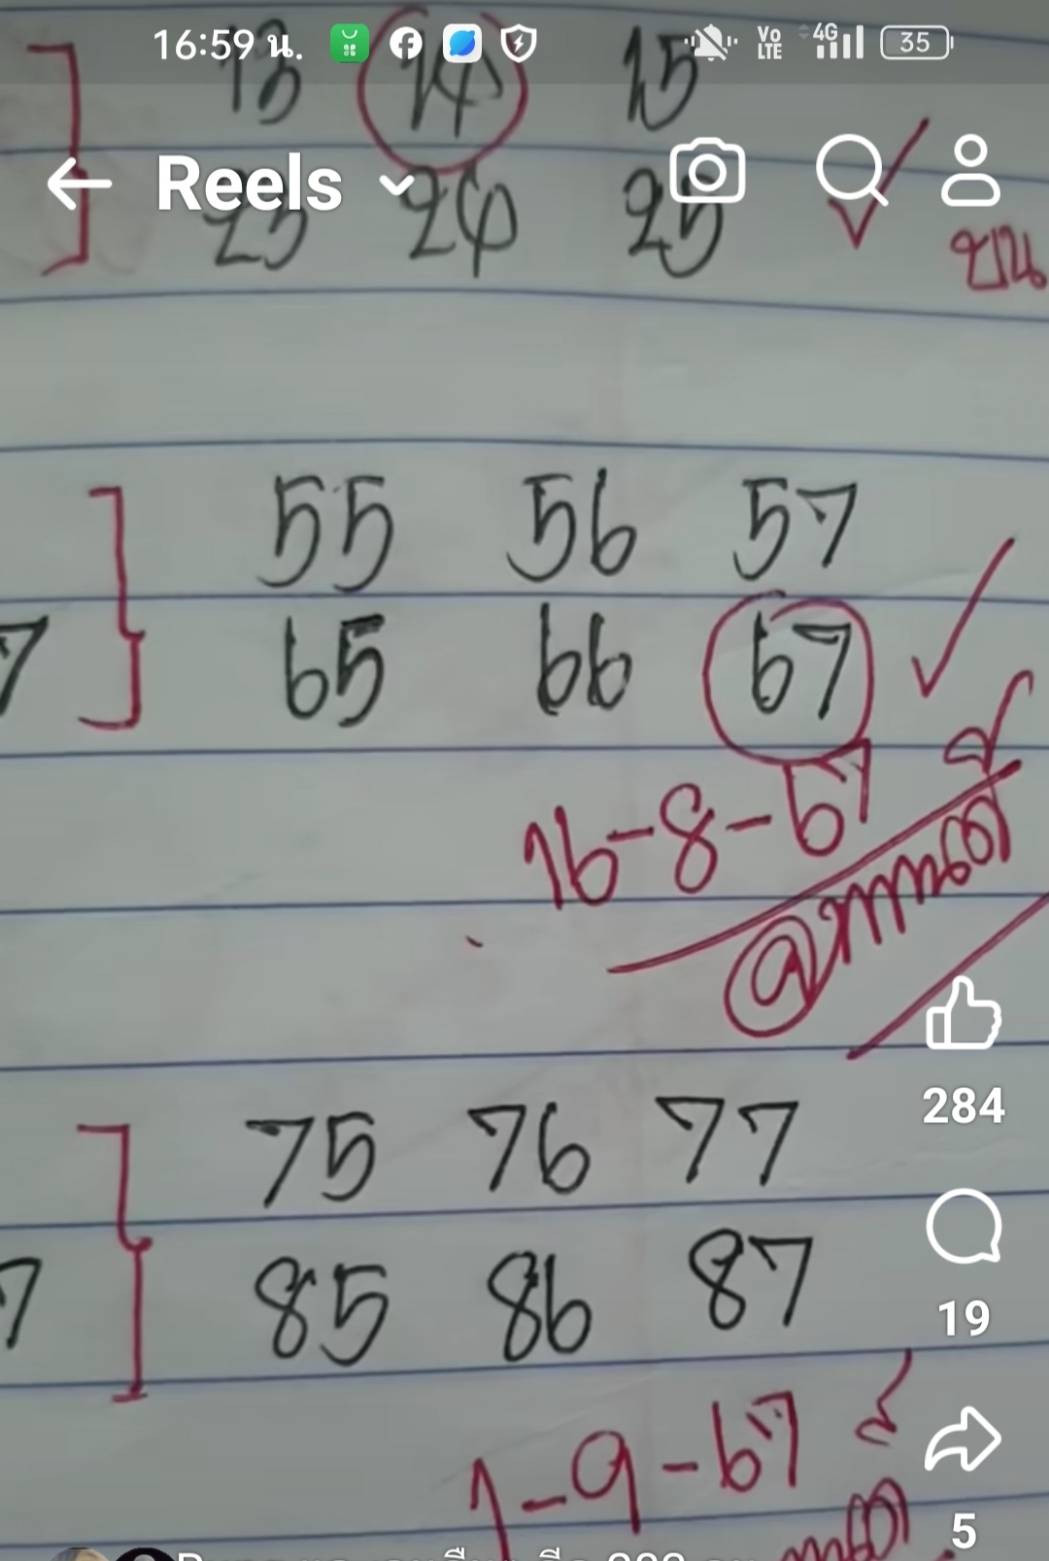 16:59 น.
VO LTE 4G 35
13 14 15
Reels
23 24 25
บน
55 56 57
7
65 66 67
16-8-67
284
75 76 77
7
85 86 87
19
1-9-67
5